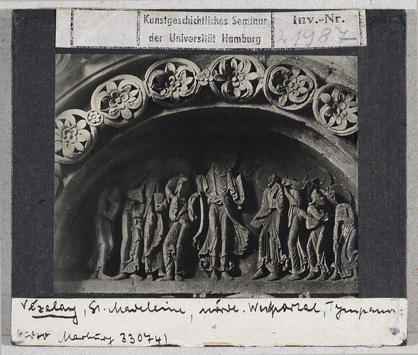 Kunstgeschichtliches Seminar
der Universität Hamburg
Inv.-Nr.
1987
Vézelay, St. Madeleine, nördl. Westportal, Tympanon
Marburg 33074)